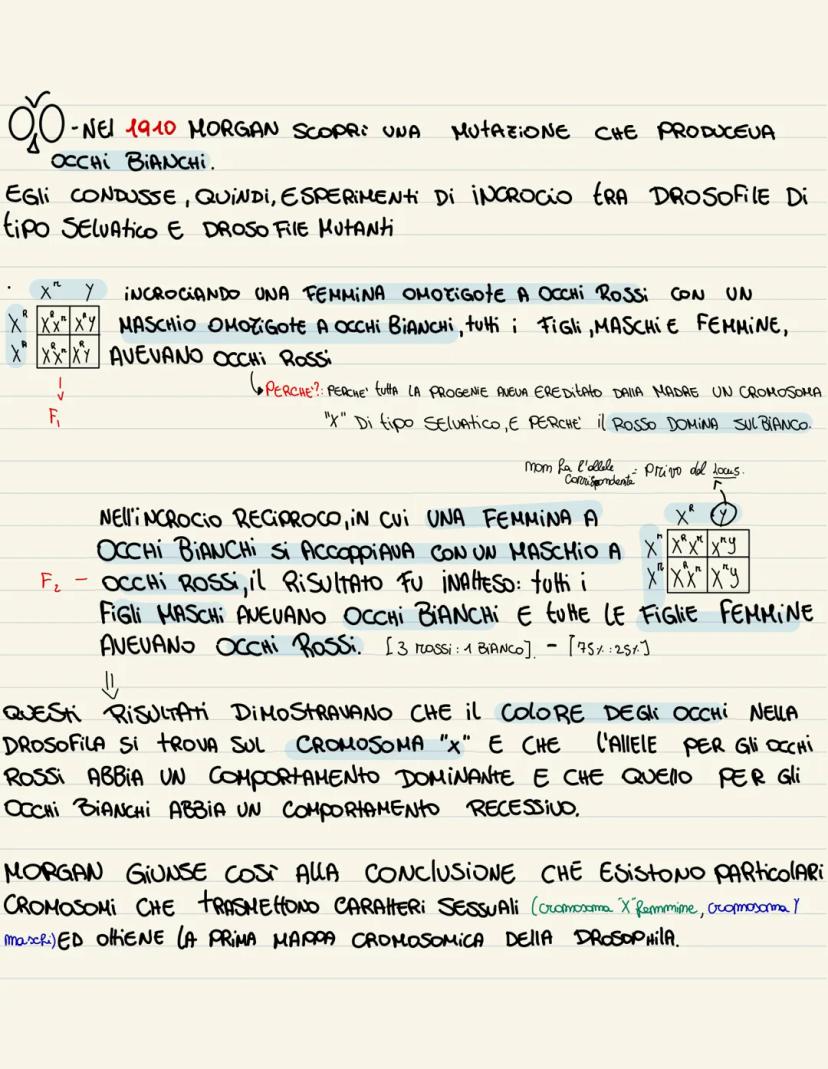 -NEl 1910 MORGAN SCOPRì UNA MUTAZIONE CHE PRODUCEVA
OCCHi BiANCHi.
EGli CONDUSSE, QUiNDi, ESPERiMENti Di iNCROCiO tRA DROSOFilE Di
tiPO SELVAtiCO E DROSOFilE MUtANti
X^r Y
X^R X^RX^r X^RY
X^R X^RX^r X^RY
F₁
iNCROCiANDO UNA FEMMiNA OMOZiGOtE A OCCHi ROSSi CON UN
MASCHiO OMOZiGOtE A OCCHi BiANCHi, tUtti i FiGli, MASCHi E FEMMiNE,
AVEVANO OCCHi ROSSi
PERCHE'?: PERCHE' tUttA LA PROGENiE AVEVA EREDitAtO DAllA MADRE UN CROMOSOMA
"X" Di tipo SElVAtiCO, E PERCHE' il ROSSO DOMiNA SUL BiANCO.
non ha l'allele corrispondente = Privo del locus.
X^R Y
X^r X^RX^r X^rY
X^r X^RX^r X^rY
NEll'iNCROCiO RECiPROCO, iN CUi UNA FEMMiNA A
OCCHi BiANCHi Si ACCOPPiAVA CON UN MASCHiO A
F₂ - OCCHi ROSSi, il RiSULtAtO FU iNAttESO: tUtti i
FiGli MASCHi AVEVANO OCCHi BiANCHi E tUttE LE FiGliE FEMMiNE
AVEVANO OCCHi ROSSi. [3 ROSSi : 1 BiANCO]. - [75% : 25%]
QUESti RiSULtAti DiMOStRAVANO CHE il COLORE DEGli OCCHi NEllA
DROSOFilA Si tROVA SUL CROMOSOMA "X" E CHE l'AllELE PER Gli OCCHi
ROSSi ABBiA UN COMPORtAMENtO DOMiNANtE E CHE QUEllO PER Gli
OCCHi BiANCHi ABBiA UN COMPORtAMENtO RECESSiVO.
MORGAN GiUNSE COSì AllA CONCLUSiONE CHE ESiStONO PARtiColARi
CROMOSOMi CHE tRASMEttONO CARAttERi SESSUAli (cromosoma "X" femmine, cromosoma Y
maschi) ED OttiENE LA PRiMA MAPPA CROMOSOMiCA DEllA DROSOPHilA.